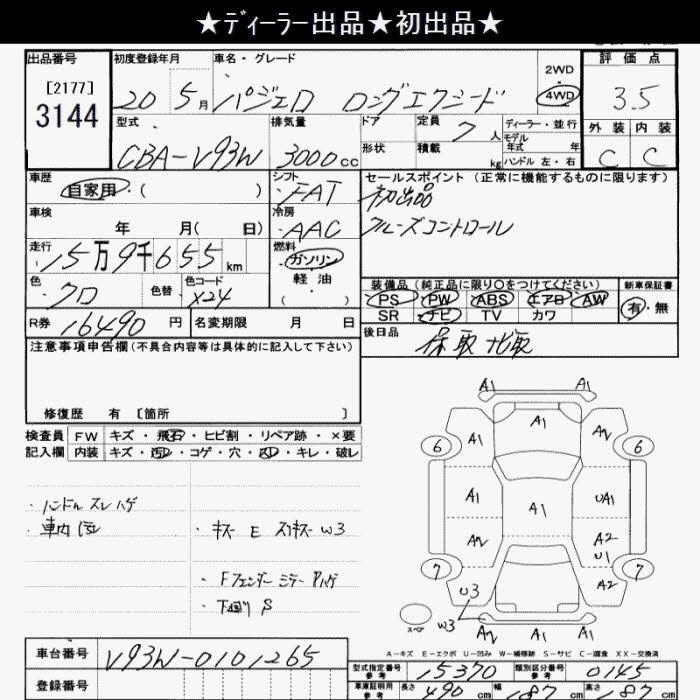 ★ディーラー出品★初出品★
出品番号
[2177]
3144
初度登録年月
20 5月
車名・グレード
パジェロ ロングエクシード
2WD
4WD
評価点
3.5
外装 内装
C C
型式
CBA-V93W
排気量
3000cc
ドア
形状
定員
7人
積載
kg
ディーラー・並行
モデル
年式 年
ハンドル 左・右
車歴
自家用・( )
シフト
FAT
セールスポイント (正常に機能するものに限ります)
初出品
クルーズコントロール
車検
年 月( 日)
冷房
AAC
走行
15万9千655km
燃料
ガソリン
軽油
( )
色
クロ
色替
色コード
X24
装備品 (純正品に限り○をつけてください)
PS PW ABS エアB AW
SR ナビ TV カワ
新車保証書
有・無
R券 16490円
名変期限 月 日
後日品
保 取 ナビ取
注意事項申告欄 (不具合内容等は具体的に記入して下さい)
修復歴 有 [箇所 ]
検査員
記入欄
FW キズ・飛石・ヒビ割・リペア跡・×要
内装 キズ・汚れ・コゲ・穴・スレ・キレ・破レ
・ハンドル スレ ハゲ
・車内 汚レ
・キズ E スリキズ W3
・Fフェンダー ミラー Pハゲ
・下廻り S
A1 A1
A1
6 A1 A2 6
A1 A1 UA1
A2 A2
U1
7 A2 7
U3
W3 A2 A1 A1
スペア
A-キズ E-エクボ U-凹み W-補修跡 S-サビ C-腐食 XX-交換済
車台番号
V93W-0101265
登録番号
型式指定番号
参考
15370
類別区分番号
参考
0145
車庫証明用
参考
長さ 490cm 幅 187cm 高さ 187cm